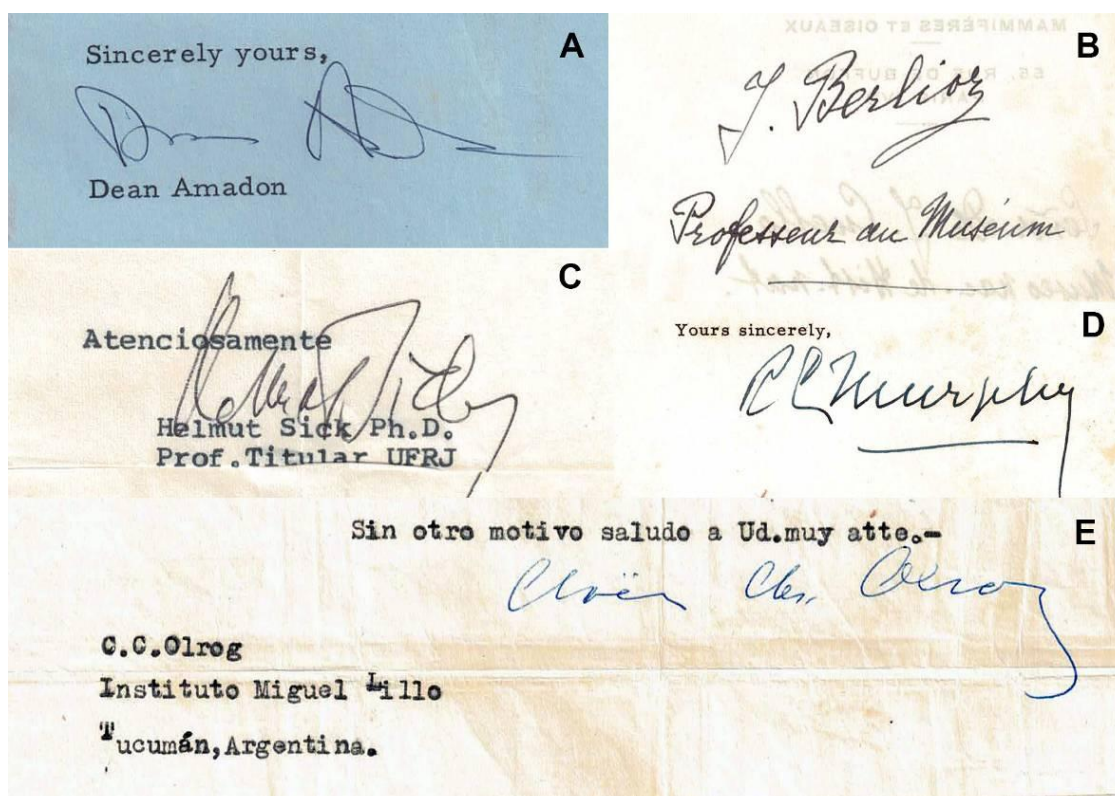 Sincerely yours,
A
Dean Amadon
MAMMIFÈRES ET OISEAUX
55, RUE DE BUFFON
B
J. Berlioz
Professeur au Muséum
C
Atenciosamente
Helmut Sick
Helmut Sick Ph.D.
Prof.Titular UFRJ
D
Yours sincerely,
RCMurphy
E
Sin otro motivo saludo a Ud.muy atte.-
Claës Chr. Olrog
C.C.Olrog
Instituto Miguel Lillo
Tucumán,Argentina.